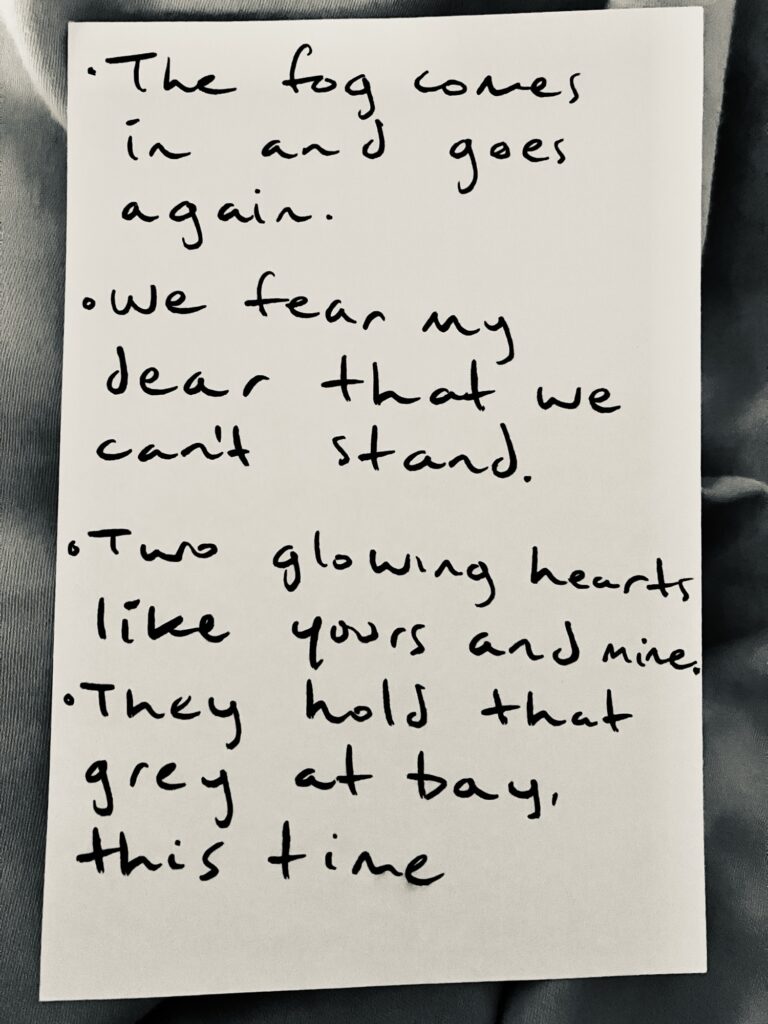 • The fog comes
in and goes
again.
• We fear my
dear that we
can't stand.
• Two glowing hearts
like yours and mine.
• They hold that
grey at bay,
this time